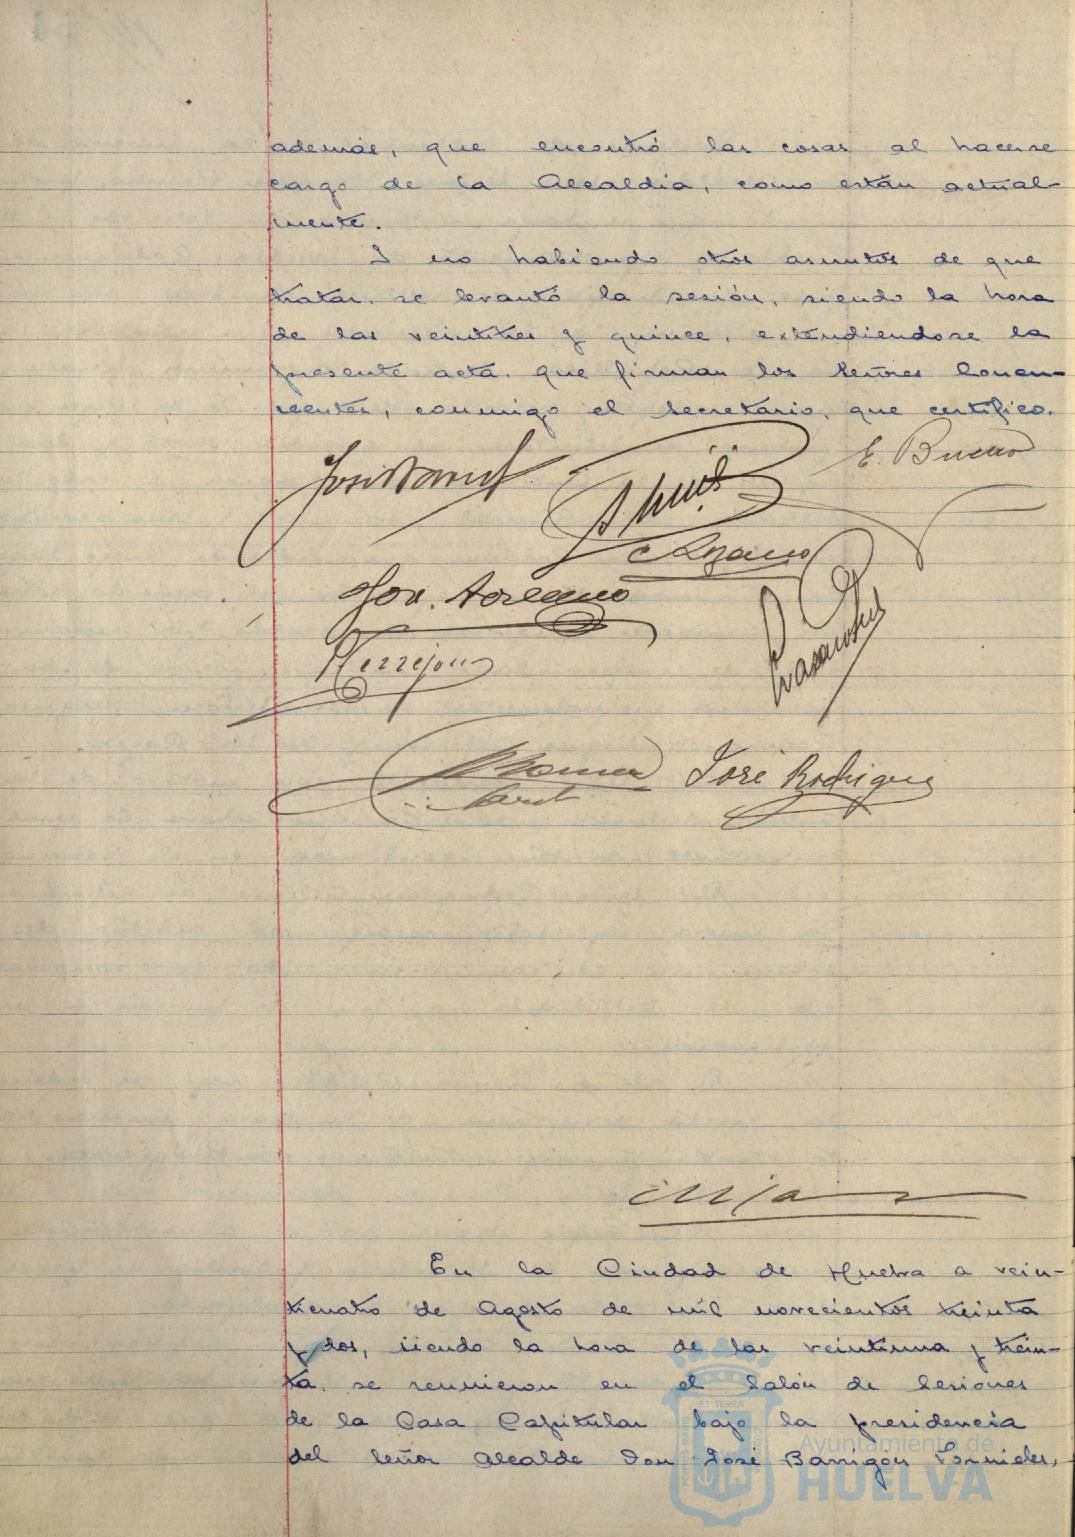 además, que encontró las cosas al hacerse
cargo de la Alcaldía, como están actual-
mente.
Y no habiendo otros asuntos de que
tratar, se levantó la sesión, siendo la hora
de las veintitres y quince, extendiendose la
presente acta, que firman los Señores Concu-
rrentes, conmigo el secretario, que certifico.
E. Bueno
Lozano
Terrejon
José Rodriguez
En la Ciudad de Huelva a vein-
ticuatro de Agosto de mil novecientos treinta
y dos, siendo la hora de las veintiuna y trein-
ta, se reunieron en el Salón de Sesiones
de la Casa Capitular bajo la presidencia
del Señor Alcalde Don José Barrigón Fornieles,
Ayuntamiento de
HUELVA